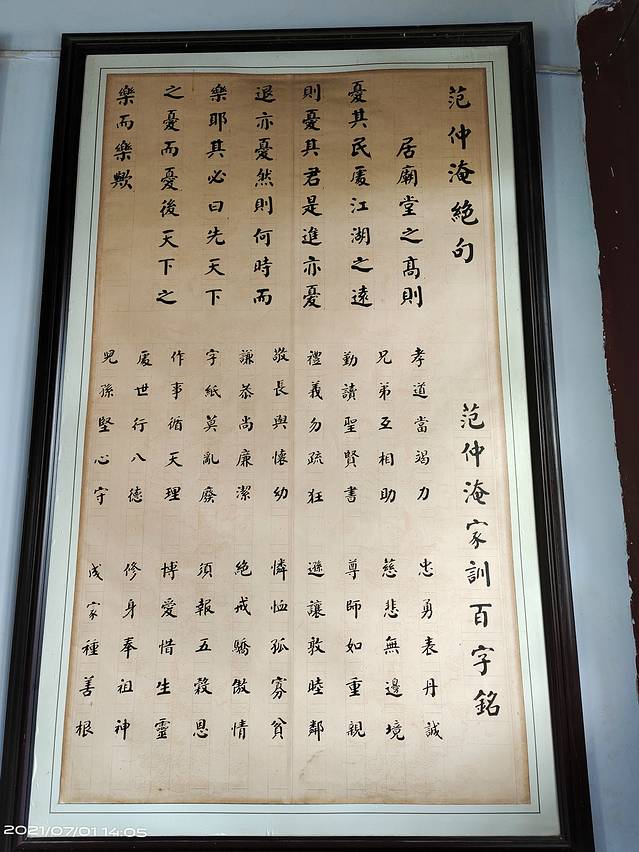 范仲淹絕句
居廟堂之髙則
憂其民處江湖之遠
則憂其君是進亦憂
退亦憂然則何時而
樂耶其必曰先天下
之憂而憂後天下之
樂而樂歟
范仲淹家訓百字銘
孝道當竭力
忠勇表丹誠
兄弟互相助
慈悲無邊境
勤讀聖賢書
尊師如重親
禮義勿疏狂
遜讓敦睦鄰
敬長與懷幼
憐恤孤寡貧
謙恭尚廉潔
絕戒驕傲情
字紙莫亂廢
須報五穀恩
作事循天理
博愛惜生靈
處世行八德
修身奉祖神
兒孫堅心守
成家種善根
2021/07/01 14:05